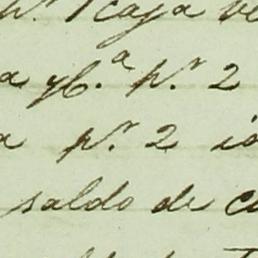 p.r 1 caja ve
a yb.a p.r 2
a p.r 2 id
saldo de c